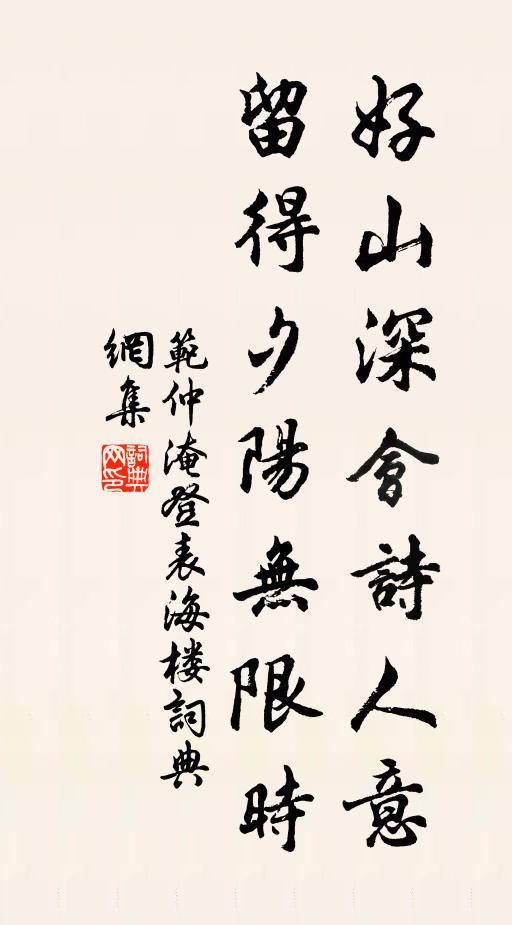 好山深會詩人意
留得夕陽無限時
範仲淹登表海楼詞典
網集
詞典
网印